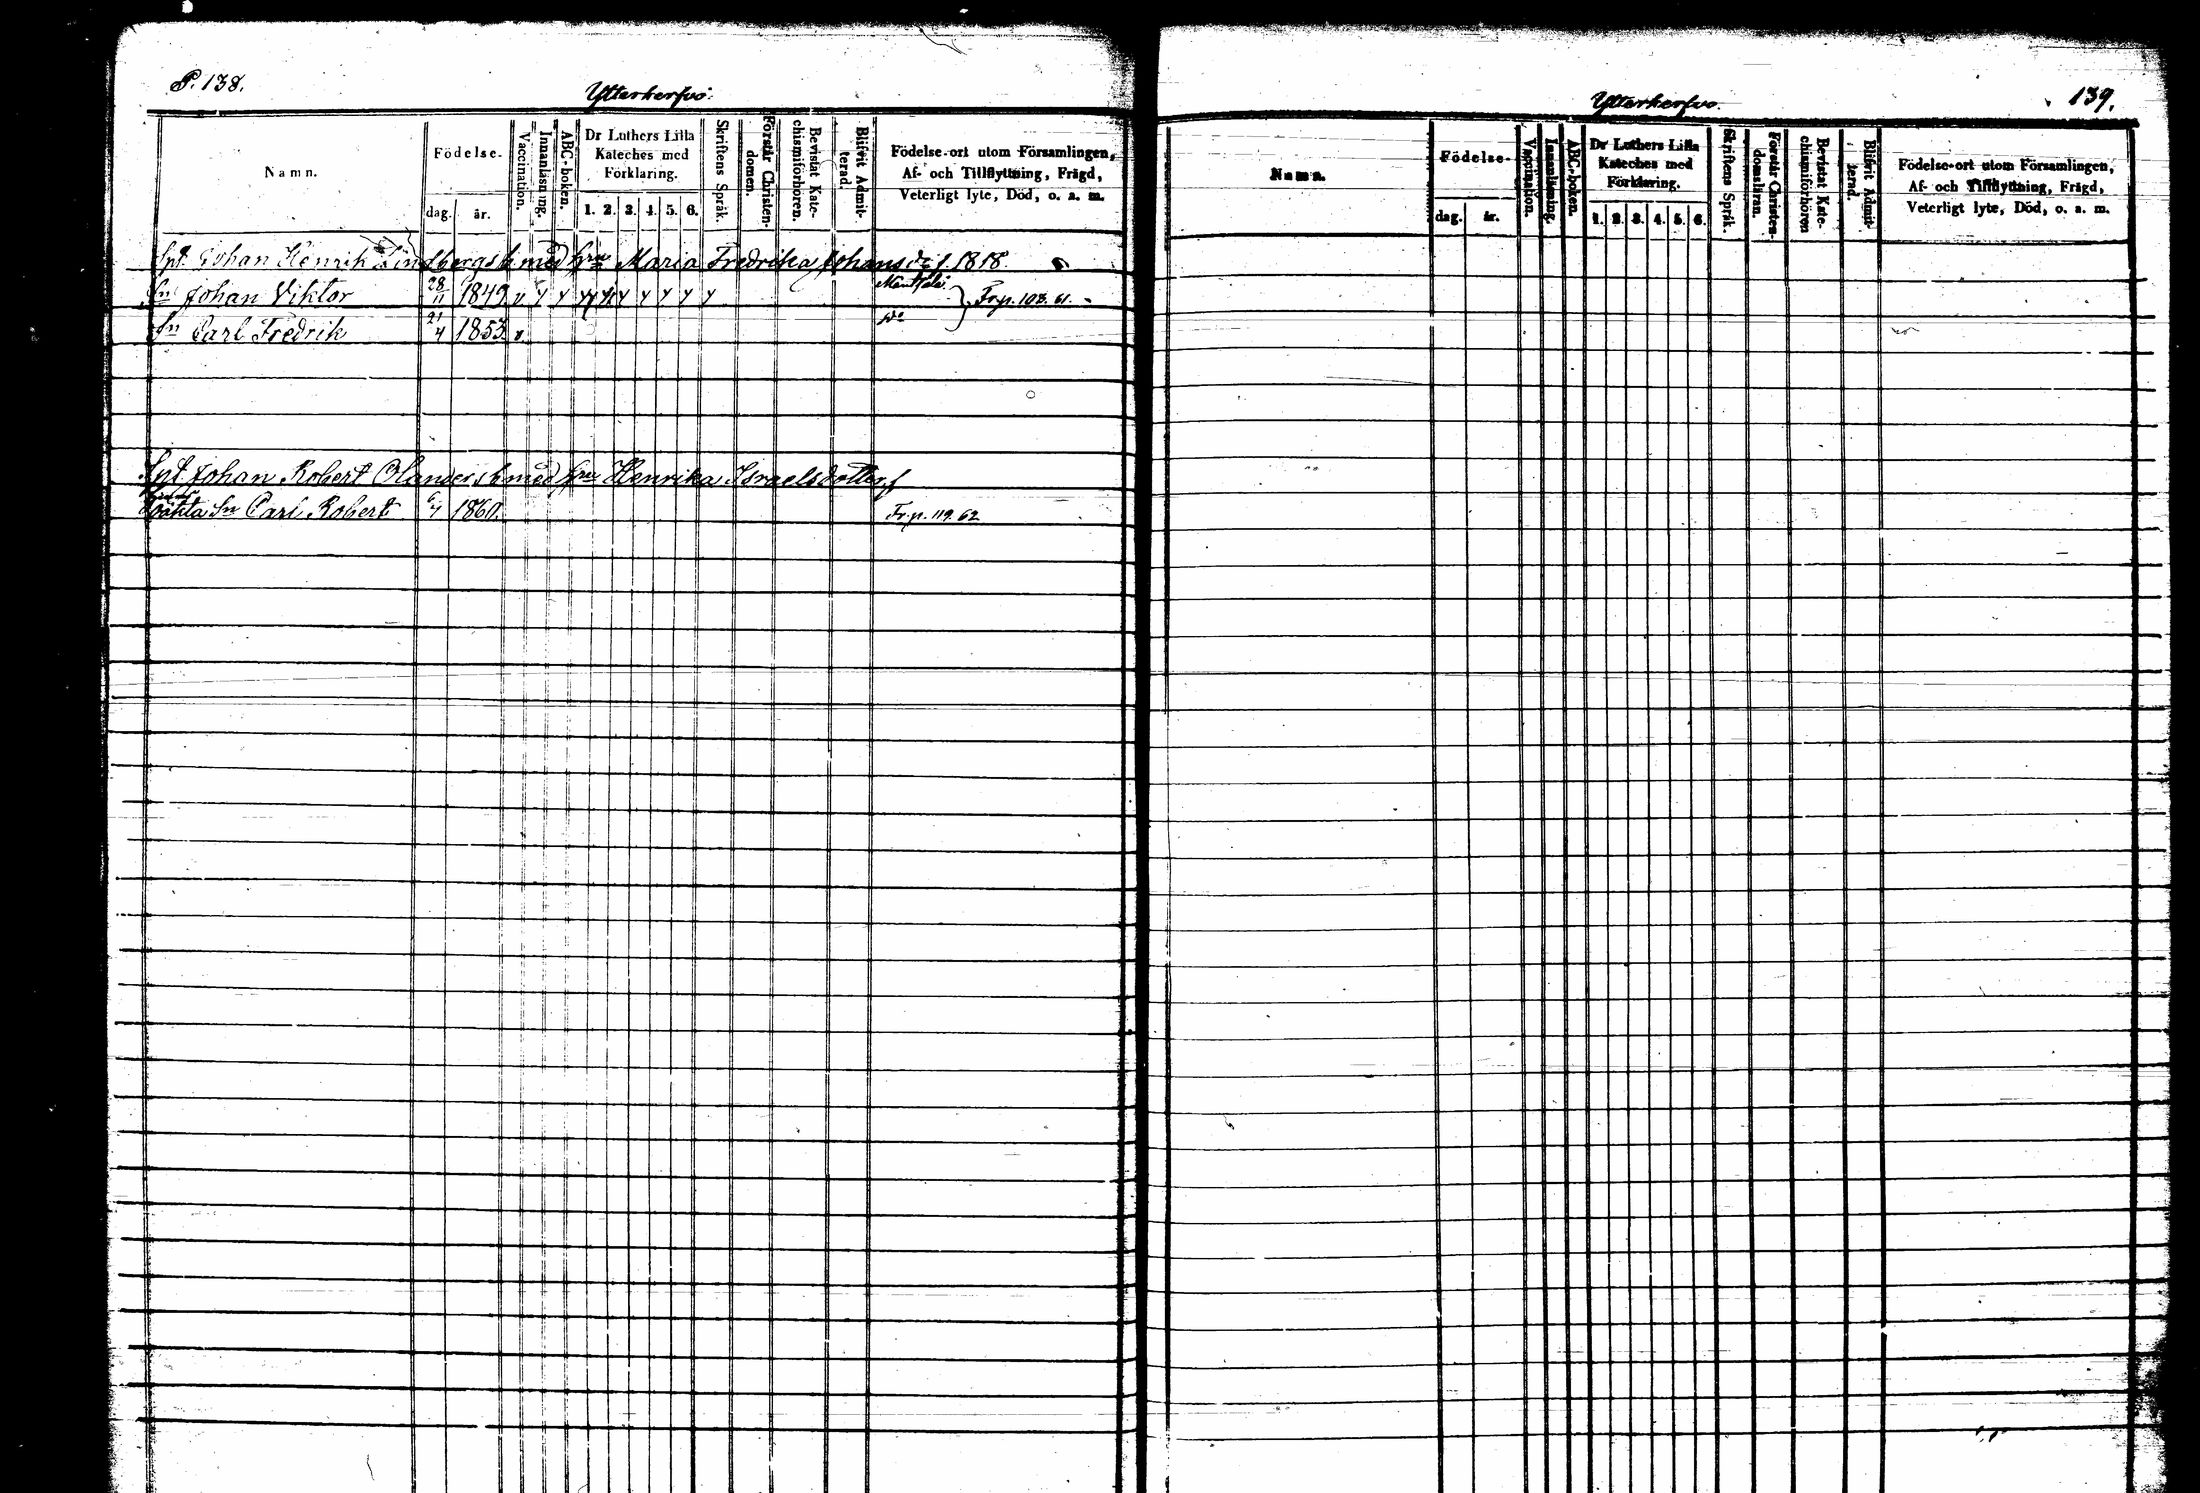 P. 138.
Ytterkerfvo.
Namn.
Födelse.
dag. år.
Vaccination.
Innanläsning.
ABC-boken.
Dr Luthers Lilla
Kateches med
Förklaring.
1. 2. 3. 4. 5. 6.
Skriftens Språk.
Förstår Christen-
domen.
Bevistat Kate-
chismiförhören.
Blifvit Admit-
terad.
Födelse-ort utom Församlingen,
Af- och Tillflyttning, Frägd,
Veterligt lyte, Död, o. a. m.
Spt. Johan Henrik Lindbergs b med hru Maria Fredrika Johansd: f. 1818.
Sn Johan Viktor 28/11 1849. v y y y y y y y y y } Fr. p. 108. 61.
Sn Carl Fredrik 21/4 1853. v. do
Spt Johan Robert Olanders b med hru Henrika Israelsdotter f
oäkta Sn Carl Robert 6/4 1860. Fr. p. 119. 62
Ytterkerfvo.
139.
Namn.
Födelse-
dag. år.
Vaccination.
Innanläsning.
ABC-boken.
Dr Luthers Lilla
Kateches med
Förklaring.
1. 2. 3. 4. 5. 6.
Skriftens Språk.
Förstår Christen-
domsläran.
Bevistat Kate-
chismiförhören
Blifvit Admit-
terad.
Födelse-ort utom Församlingen,
Af- och Tillflyttning, Frägd,
Veterligt lyte, Död, o. a. m.